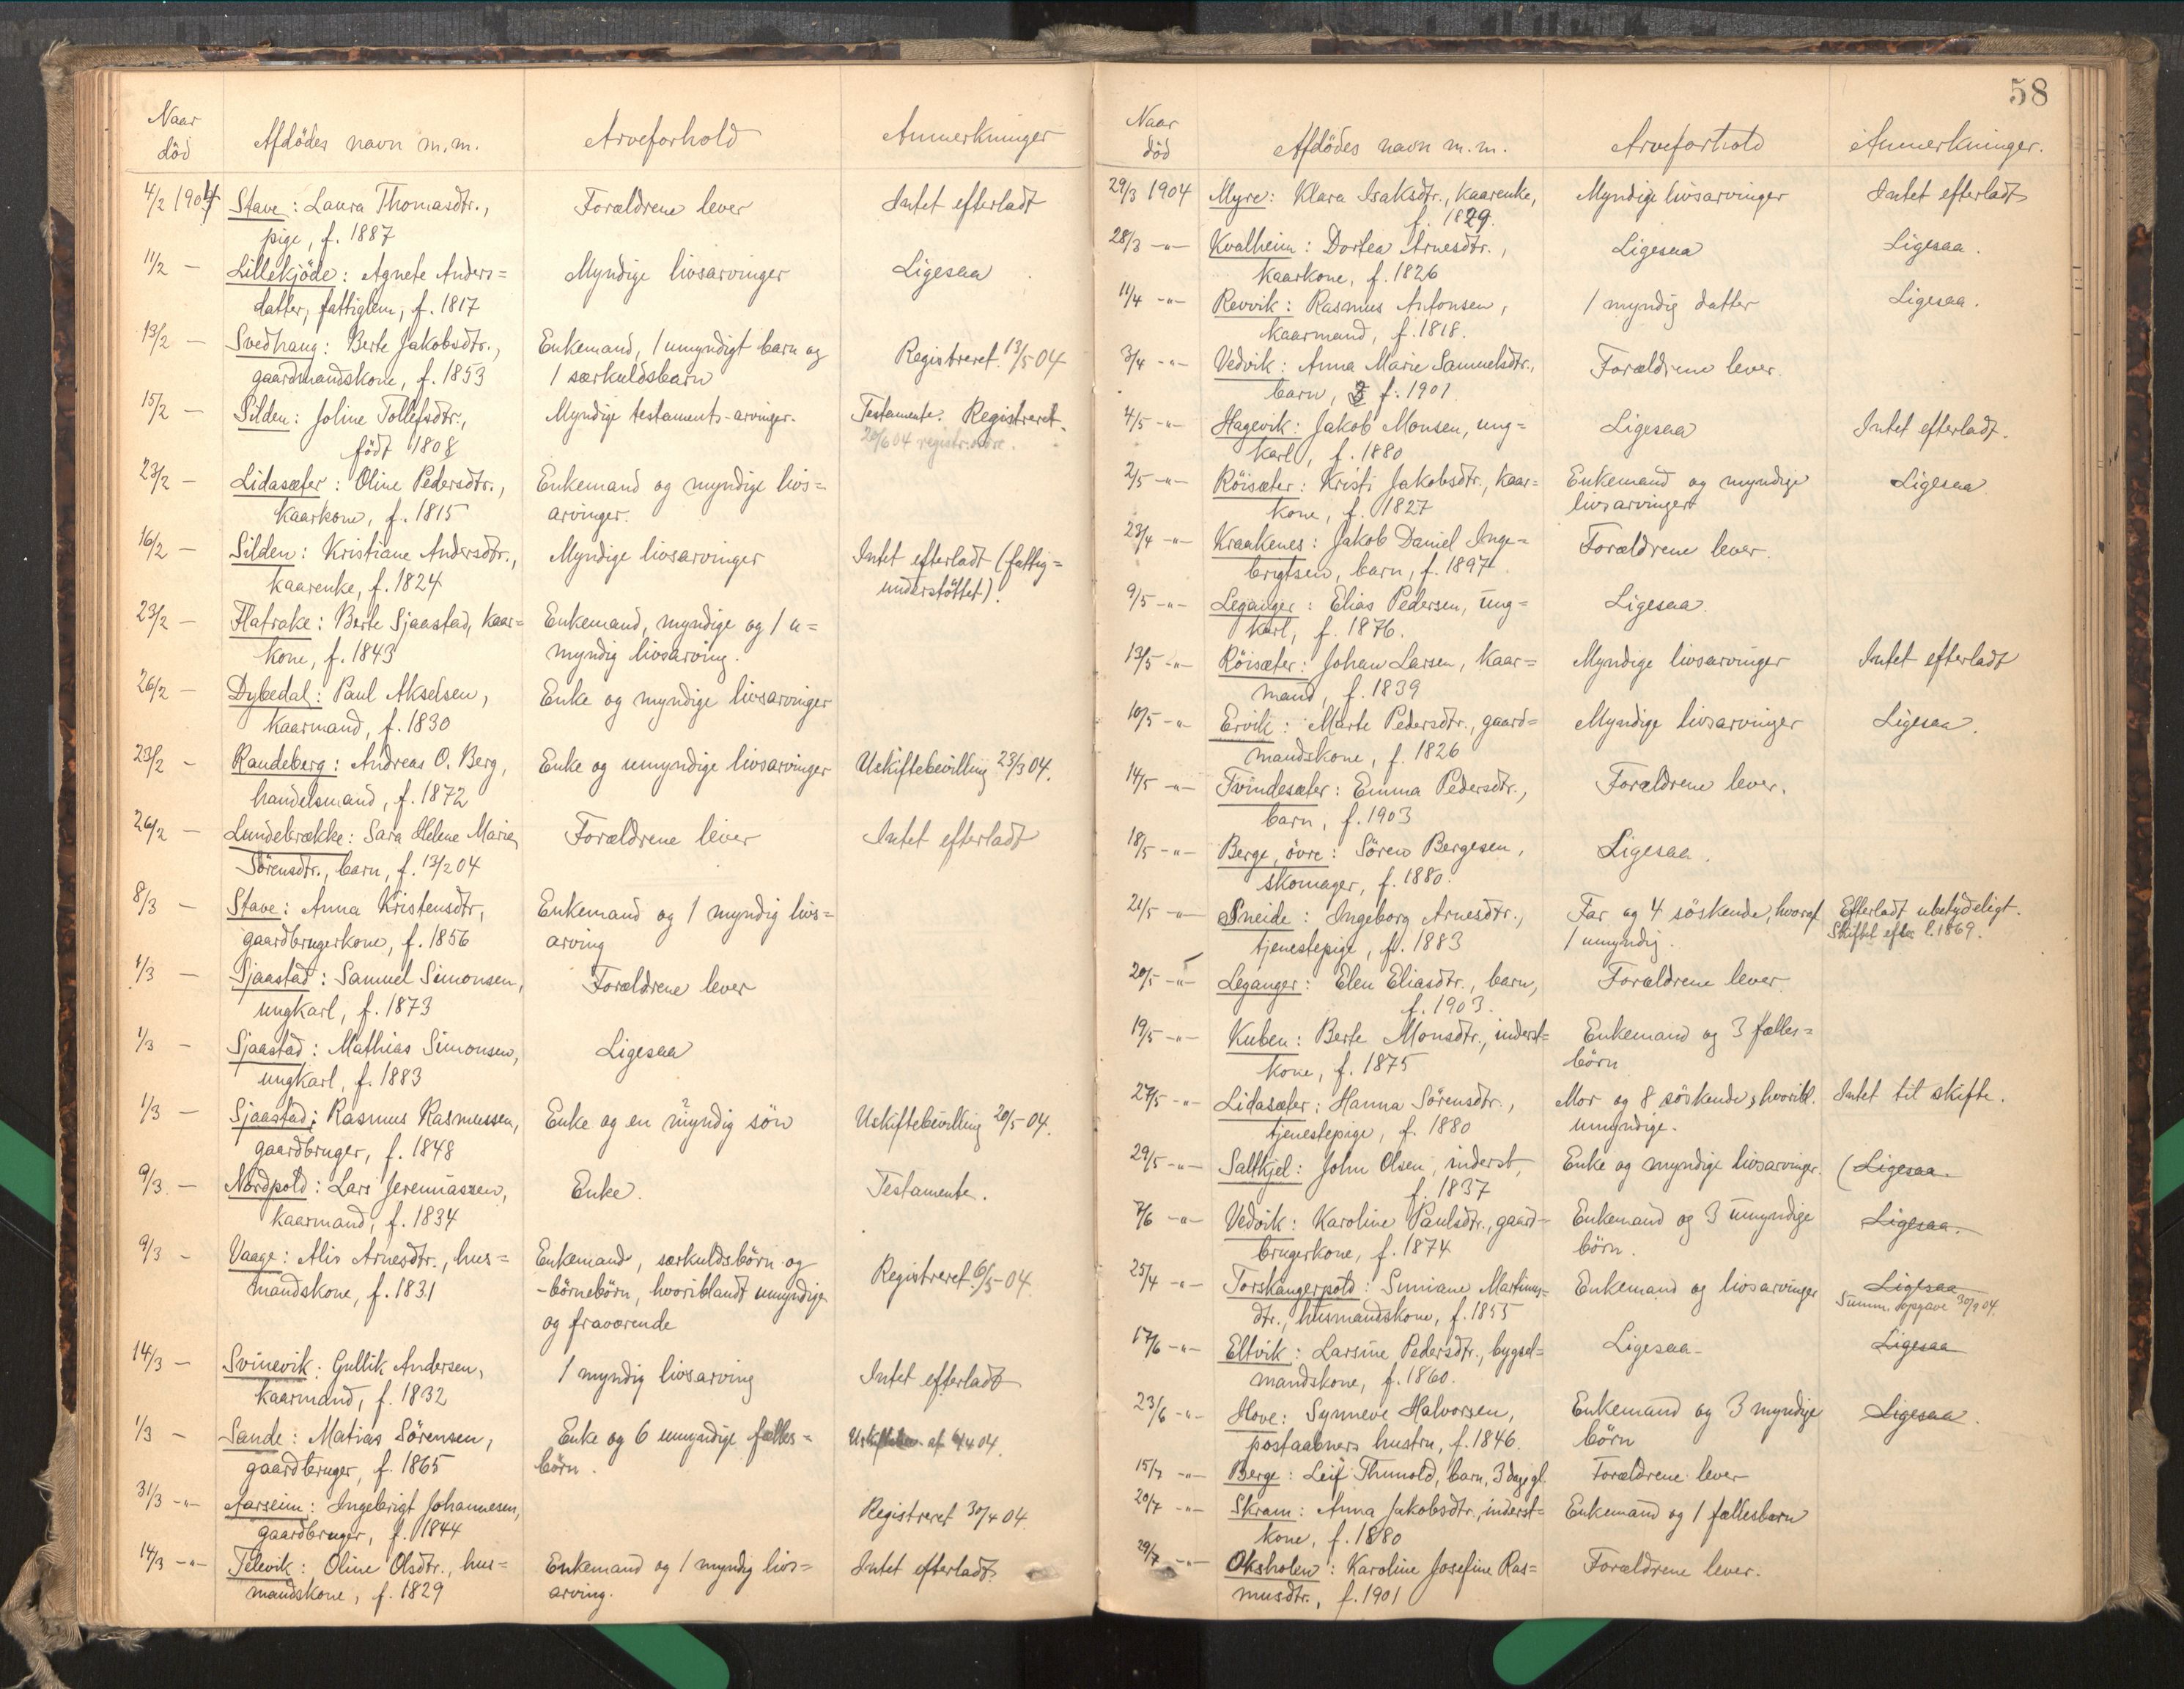 Naar død
Afdödes navn m.m.
Arveforhold
Anmerkninger
4/2 1904 Stave: Laura Thomasdtr., Forældrene lever Intet efterladt
pige, f. 1887
11/2 — Lillekjöde: Agnete Anders= Myndige livsarvinger Ligesaa
datter, fattiglem, f. 1817
13/2 — Svedhaug: Berte Jakobsdtr., Enkemand, 1 umyndigt barn og Registreret 13/5 04
gaardmandskone, f. 1853 1 særkuldsbarn
15/2 — Silden: Joline Tollefsdtr., Myndige testaments-arvinger. Testamente. Registreret.
født 1808 20/6 04 registr.
23/2 — Lidasæter: Oline Pedersdtr., Enkemand og myndige livs=
kaarkone, f. 1815 arvinger.
16/2 — Silden: Kristiane Andersdtr., Myndige livsarvinger Intet efterladt (fattig=
kaarenke, f. 1824 understöttet).
23/2 — Flatrake: Berte Sjaastad, kaar= Enkemand, myndige og 1 u=
kone, f. 1843 myndig livsarving.
26/2 — Dybedal: Paul Akselsen, Enke og myndige livsarvinger
kaarmand, f. 1830
23/2 — Raudeberg: Andreas O. Berg, Enke og umyndige livsarvinger Uskiftebevilling 23/3 04.
handelsmand, f. 1872
26/2 — Lundebrække: Sara Helene Marie Forældrene lever Intet efterladt
Sörensdtr., barn, f. 13/2 04
8/3 — Stave: Anna Kristensdtr, Enkemand og 1 myndig livs=
gaardbrugerkone, f. 1856 arving
1/3 — Sjaastad: Samuel Simonsen, Forældrene lever
ungkarl, f. 1873
1/3 — Sjaastad: Mathias Simonsen, Ligesaa
ungkarl, f. 1883
1/3 — Sjaastad: Rasmus Rasmussen, Enke og en myndig sön Uskiftebevilling 20/5 04.
gaardbruger, f. 1848
9/3 — Nordpold: Lars Jeremiassen, Enke. Testamente.
kaarmand, f. 1834
9/3 — Vaage: Alis Arnesdtr., hus= Enkemand, særkuldsbörn og
mandskone, f. 1831 -börnebörn, hvoriblandt umyndige Registreret 6/5 04.
og fraværende
14/3 — Svinevik: Gullik Andersen, 1 myndig livsarving Intet efterladt
kaarmand, f. 1832
1/3 — Sande: Matias Sörensen, Enke og 6 umyndige fælles= af 4/4 04.
gaardbruger, f. 1865 börn.
31/3 -"- Aarseim: Ingebrigt Johannesen, Registreret 30/4 04.
gaardbruger, f. 1844
14/3 -"- Televik: Oline Olsdtr., hus= Enkemand og 1 myndig livs= Intet efterladt.
mandskone, f. 1829 arving.
58
Naar død
Afdödes navn m.m.
Arveforhold
Anmerkninger.
29/3 1904 Myre: Klara Isaksdtr., kaarenke, Myndige livsarvinger Intet efterladt
f. 1829.
28/3 -"- Kvalheim: Dortea Arnesdtr., Ligesaa Ligesaa.
kaarkone, f. 1826
11/4 -"- Revvik: Rasmus Antonsen, 1 myndig datter Ligesaa.
kaarmand, f. 1818.
3/4 -"- Vedvik: Anna Marie Samuelsdtr., Forældrene lever.
barn, f. 1901.
4/5 -"- Hagevik: Jakob Monsen, ung= Ligesaa Intet efterladt.
karl, f. 1880
2/5 -"- Röisæter: Kristi Jakobsdtr., kaar= Enkemand og myndige Ligesaa
kone, f. 1827 livsarvinger
23/4 -"- Kraakenes: Jakob Daniel Inge= Forældrene lever.
brigtsen, barn, f. 1897
9/5 -"- Leganger: Elias Pedersen, ung= Ligesaa.
karl, f. 1876.
13/5 -"- Röisæter: Johan Larsen, kaar= Myndige livsarvinger Intet efterladt
mand, f. 1839
10/5 -"- Ervik: Marte Pedersdtr., gaard= Myndige livsarvinger Ligesaa.
mandskone, f. 1826
14/5 -"- Tvindesæter: Emma Pedersdtr., Forældrene lever.
barn, f. 1903
18/5 -"- Berge, övre: Sören Bergesen, Ligesaa.
skomager, f. 1880.
21/5 -"- Sneide: Ingeborg Arnesdtr., Far og 4 söskende, hvoraf Efterladt ubetydeligt.
tjenestepige, f. 1883 1 umyndig. Skiftet efter l. 1869.
20/5 -"- Leganger: Elen Eliasdtr., barn, Forældrene lever
f. 1903.
19/5 -"- Kuben: Berte Monsdtr., inderst= Enkemand og 3 fælles=
kone, f. 1875 börn
27/5 -"- Lidasæter: Hanna Sörensdtr., Mor og 8 söskende, hvoribl. Intet til skifte.
tjenestepige, f. 1880 umyndige.
29/5 -"- Salthjel: John Olsen, inderst, Enke og myndige livsarvinger. (Ligesaa.
f. 1837
7/6 -"- Vedvik: Karoline Paulsdtr., gaard= Enkemand og 3 umyndige Ligesaa.
brugerkone, f. 1874 börn.
25/4 -"- Torskangerpold: Simiane Martinus= Enkemand og livsarvinger Ligesaa
dtr., husmandskone, f. 1855 Summ. opgave 30/9 04.
17/6 -"- Eltvik: Larsine Pedersdtr., bygsel= Ligesaa- Ligesaa
mandskone, f. 1860.
23/6 -"- Hove: Synneve Halvorsen, Enkemand og 3 myndige Ligesaa.
postaabners hustru, f. 1846. börn
15/7 -"- Berge: Leif Thunold, barn, 3 dag gl. Forældrene lever
20/7 -"- Skram: Anna Jakobsdtr., inderst= Enkemand og 1 fællesbarn
kone, f. 1880
29/7 -"- Oksholen: Karoline Josefine Ras= Forældrene lever.
musdtr., f. 1901